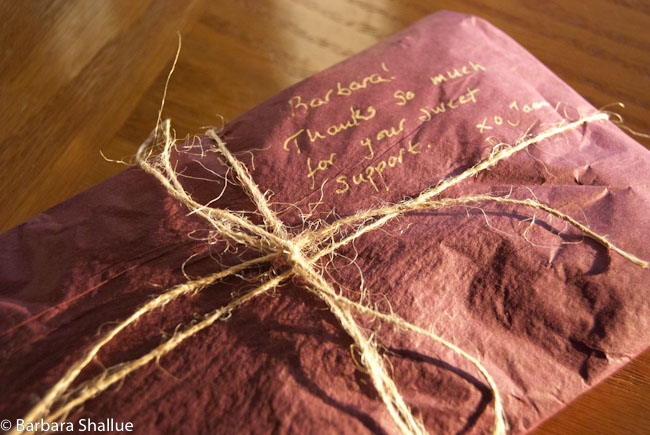 Barbara!
Thanks so much
for your sweet
support.
xo Jam
© Barbara Shallue